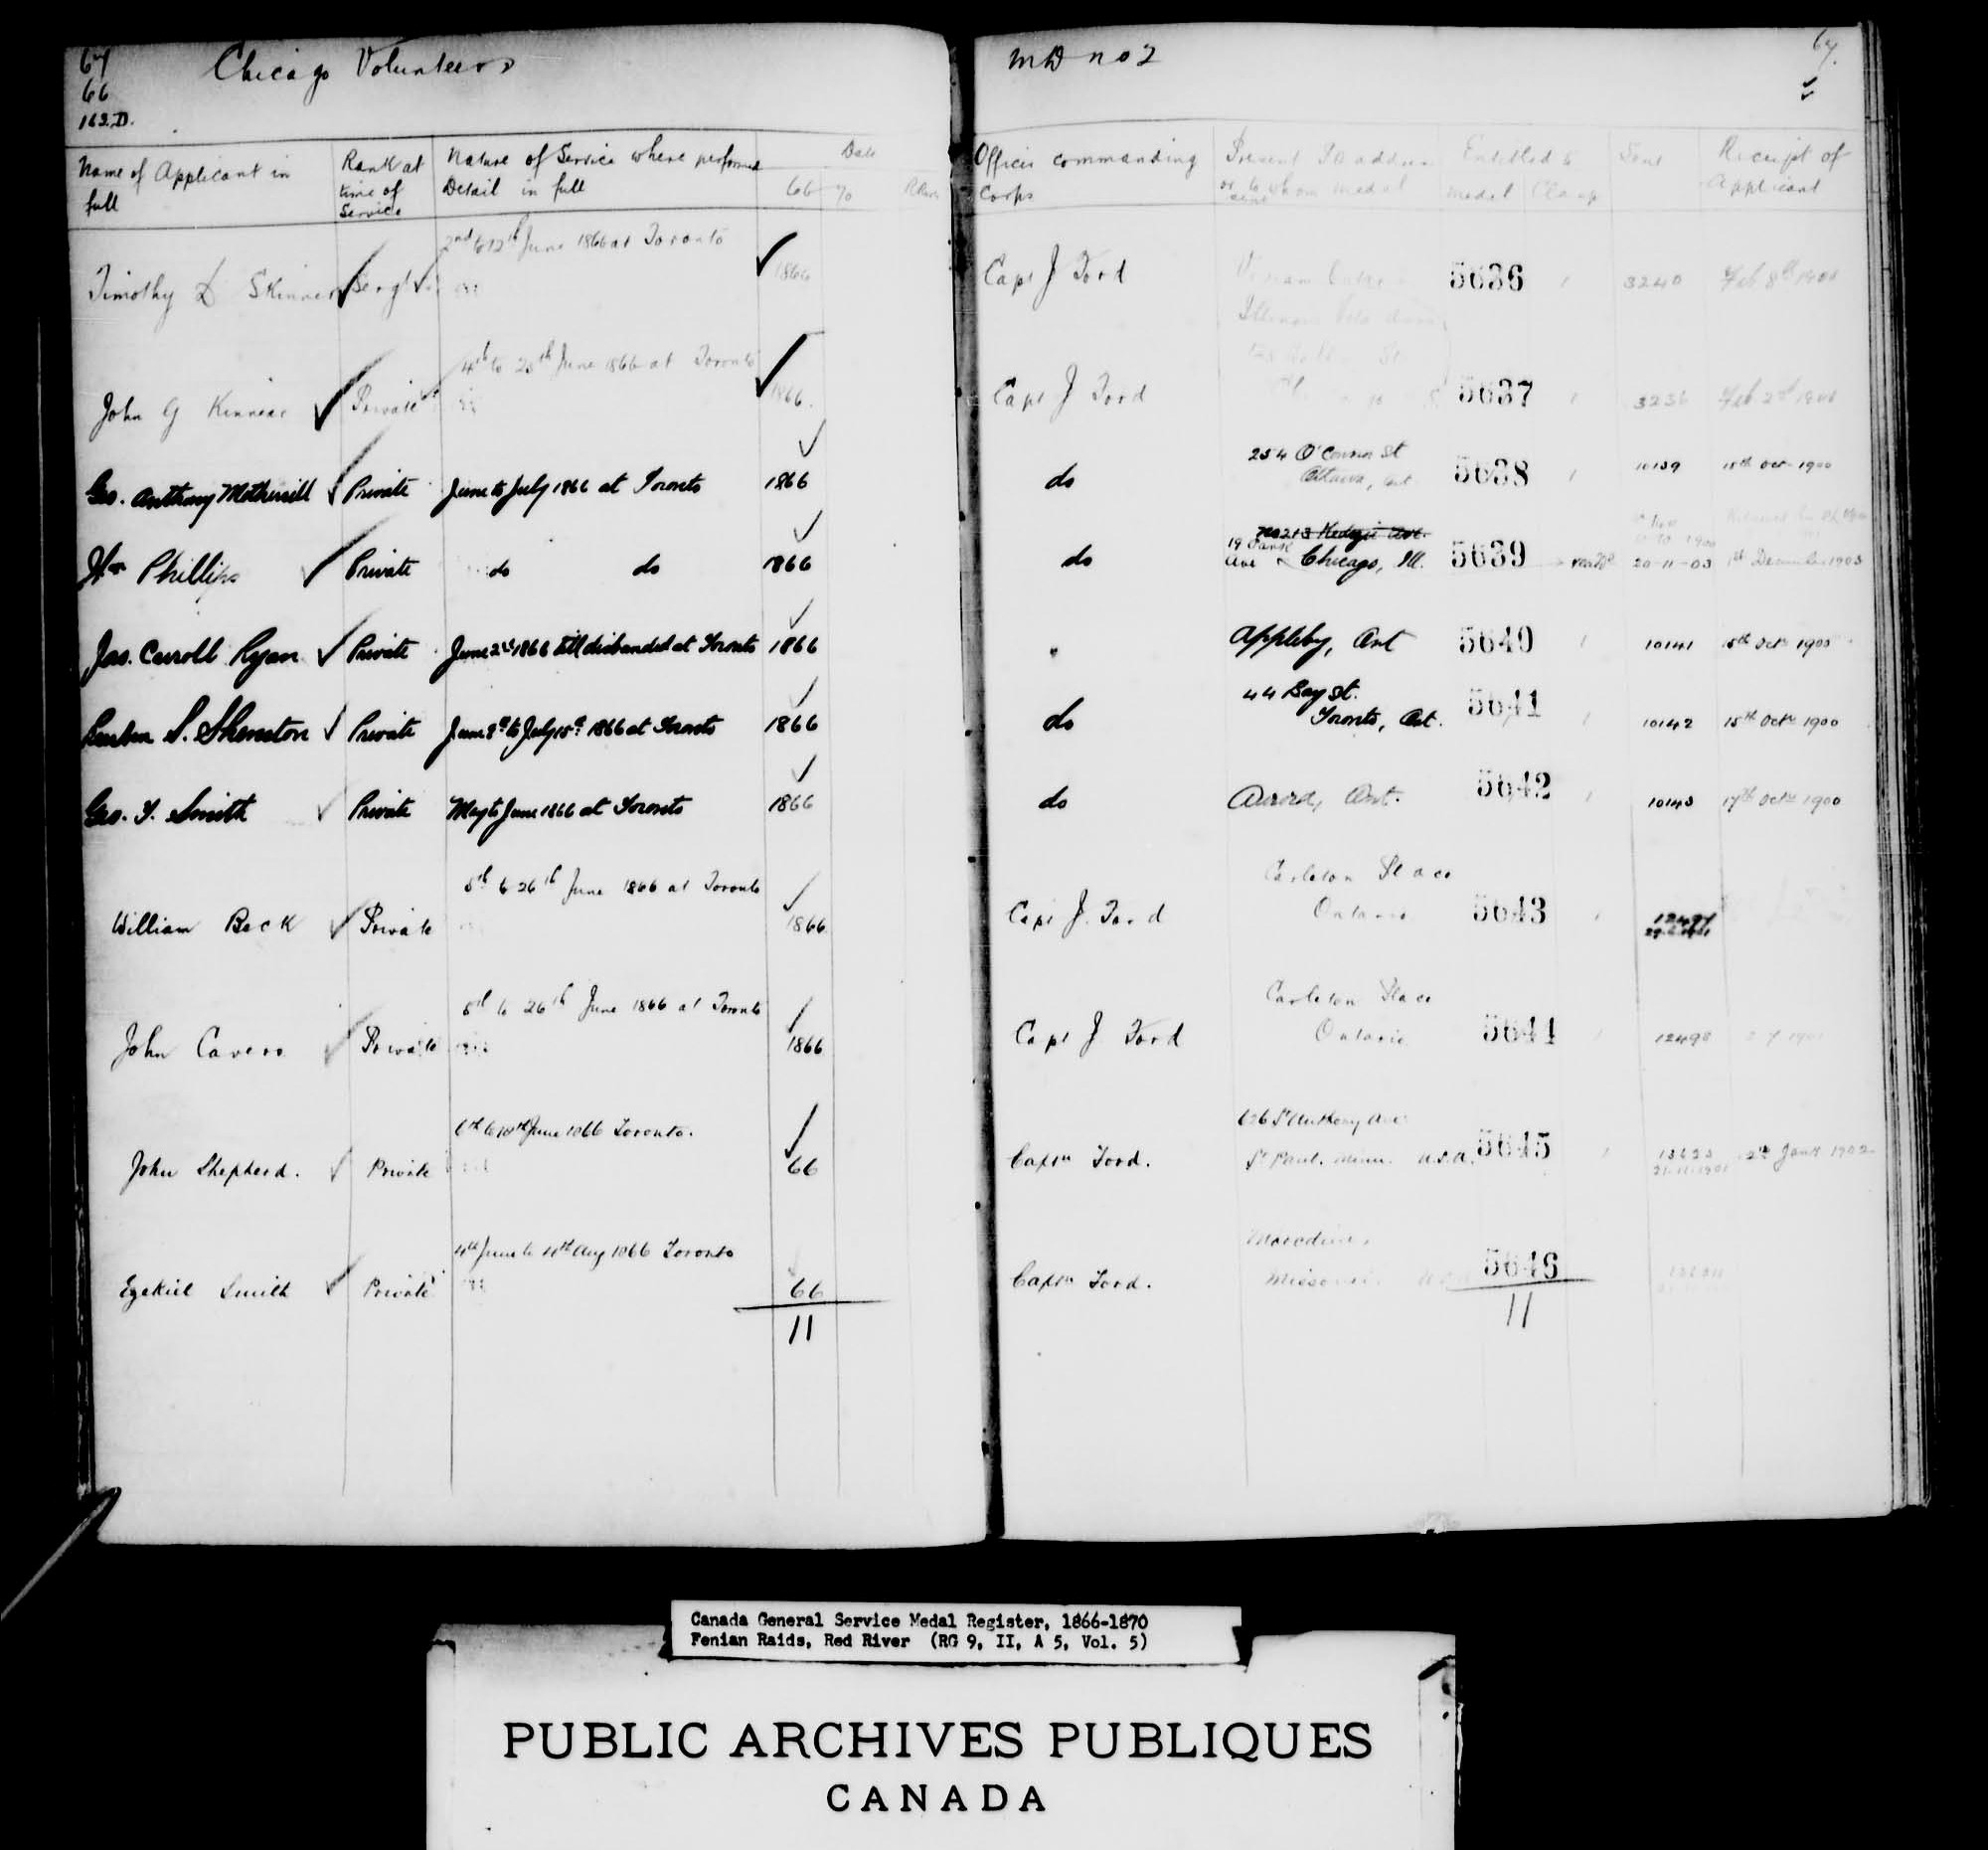 67
66
162.D.
Chicago Volunteers
Name of Applicant in full
Rank at time of Service
Nature of Service where performed Detail in full
Date
66 70
Timothy D Skinner Sergt 2nd to 12th June 1866 at Toronto 1866
John G Kinnear Private 4th to 25th June 1866 at Toronto 1866
Geo. Anthony Mothersill Private June to July 1866 at Toronto 1866
Wm Phillips Private do do 1866
Jas. Carroll Ryan Private June 2nd 1866 till disbanded at Toronto 1866
Reuben S. Shenston Private June 2nd to July 15th 1866 at Toronto 1866
Geo. Y. Smith Private May to June 1866 at Toronto 1866
William Beck Private 5th to 26th June 1866 at Toronto 1866
John Cavers Private 5th to 26th June 1866 at Toronto 1866
John Shepherd. Private 6th to 18th June 1866 Toronto. 66
Ezekiel Smith Private 4th June to 11th Aug 1866 Toronto 66
11
MD no 2
67.
Officer commanding corps
Present PO address or to whom medal sent
Entitled to
medal Clasp
Sent
Receipt of Applicant
Capt J Ford 5636 3240 Feb 8th 1900
Capt J Ford 5637 3236 Feb 2nd 1900
do 254 O'Connor St Ottawa, Ont 5638 10139 15th Oct 1900
do No 213 Kedzie Ave. 19 Ave Chicago, Ill. 5639 20-11-03 1st December 1903
" Appleby, Ont 5640 10141 15th Octr 1900
do 44 Bay St. Toronto, Ont. 5641 10142 15th Octr 1900
do Aurora, Ont. 5642 10143 17th Octr 1900
Capt J. Ford Carleton Place Ontario 5643 12497
Capt J Ford Carleton Place Ontario 5644 12498
Captn Ford. 626 St Anthony Ave St Paul. Minn. U.S.A. 5645 13623 21-11-1901 2nd Jany 1902
Captn Ford. Missouri. 5646
11
Canada General Service Medal Register, 1866-1870
Fenian Raids, Red River (RG 9, II, A 5, Vol. 5)
PUBLIC ARCHIVES PUBLIQUES
CANADA